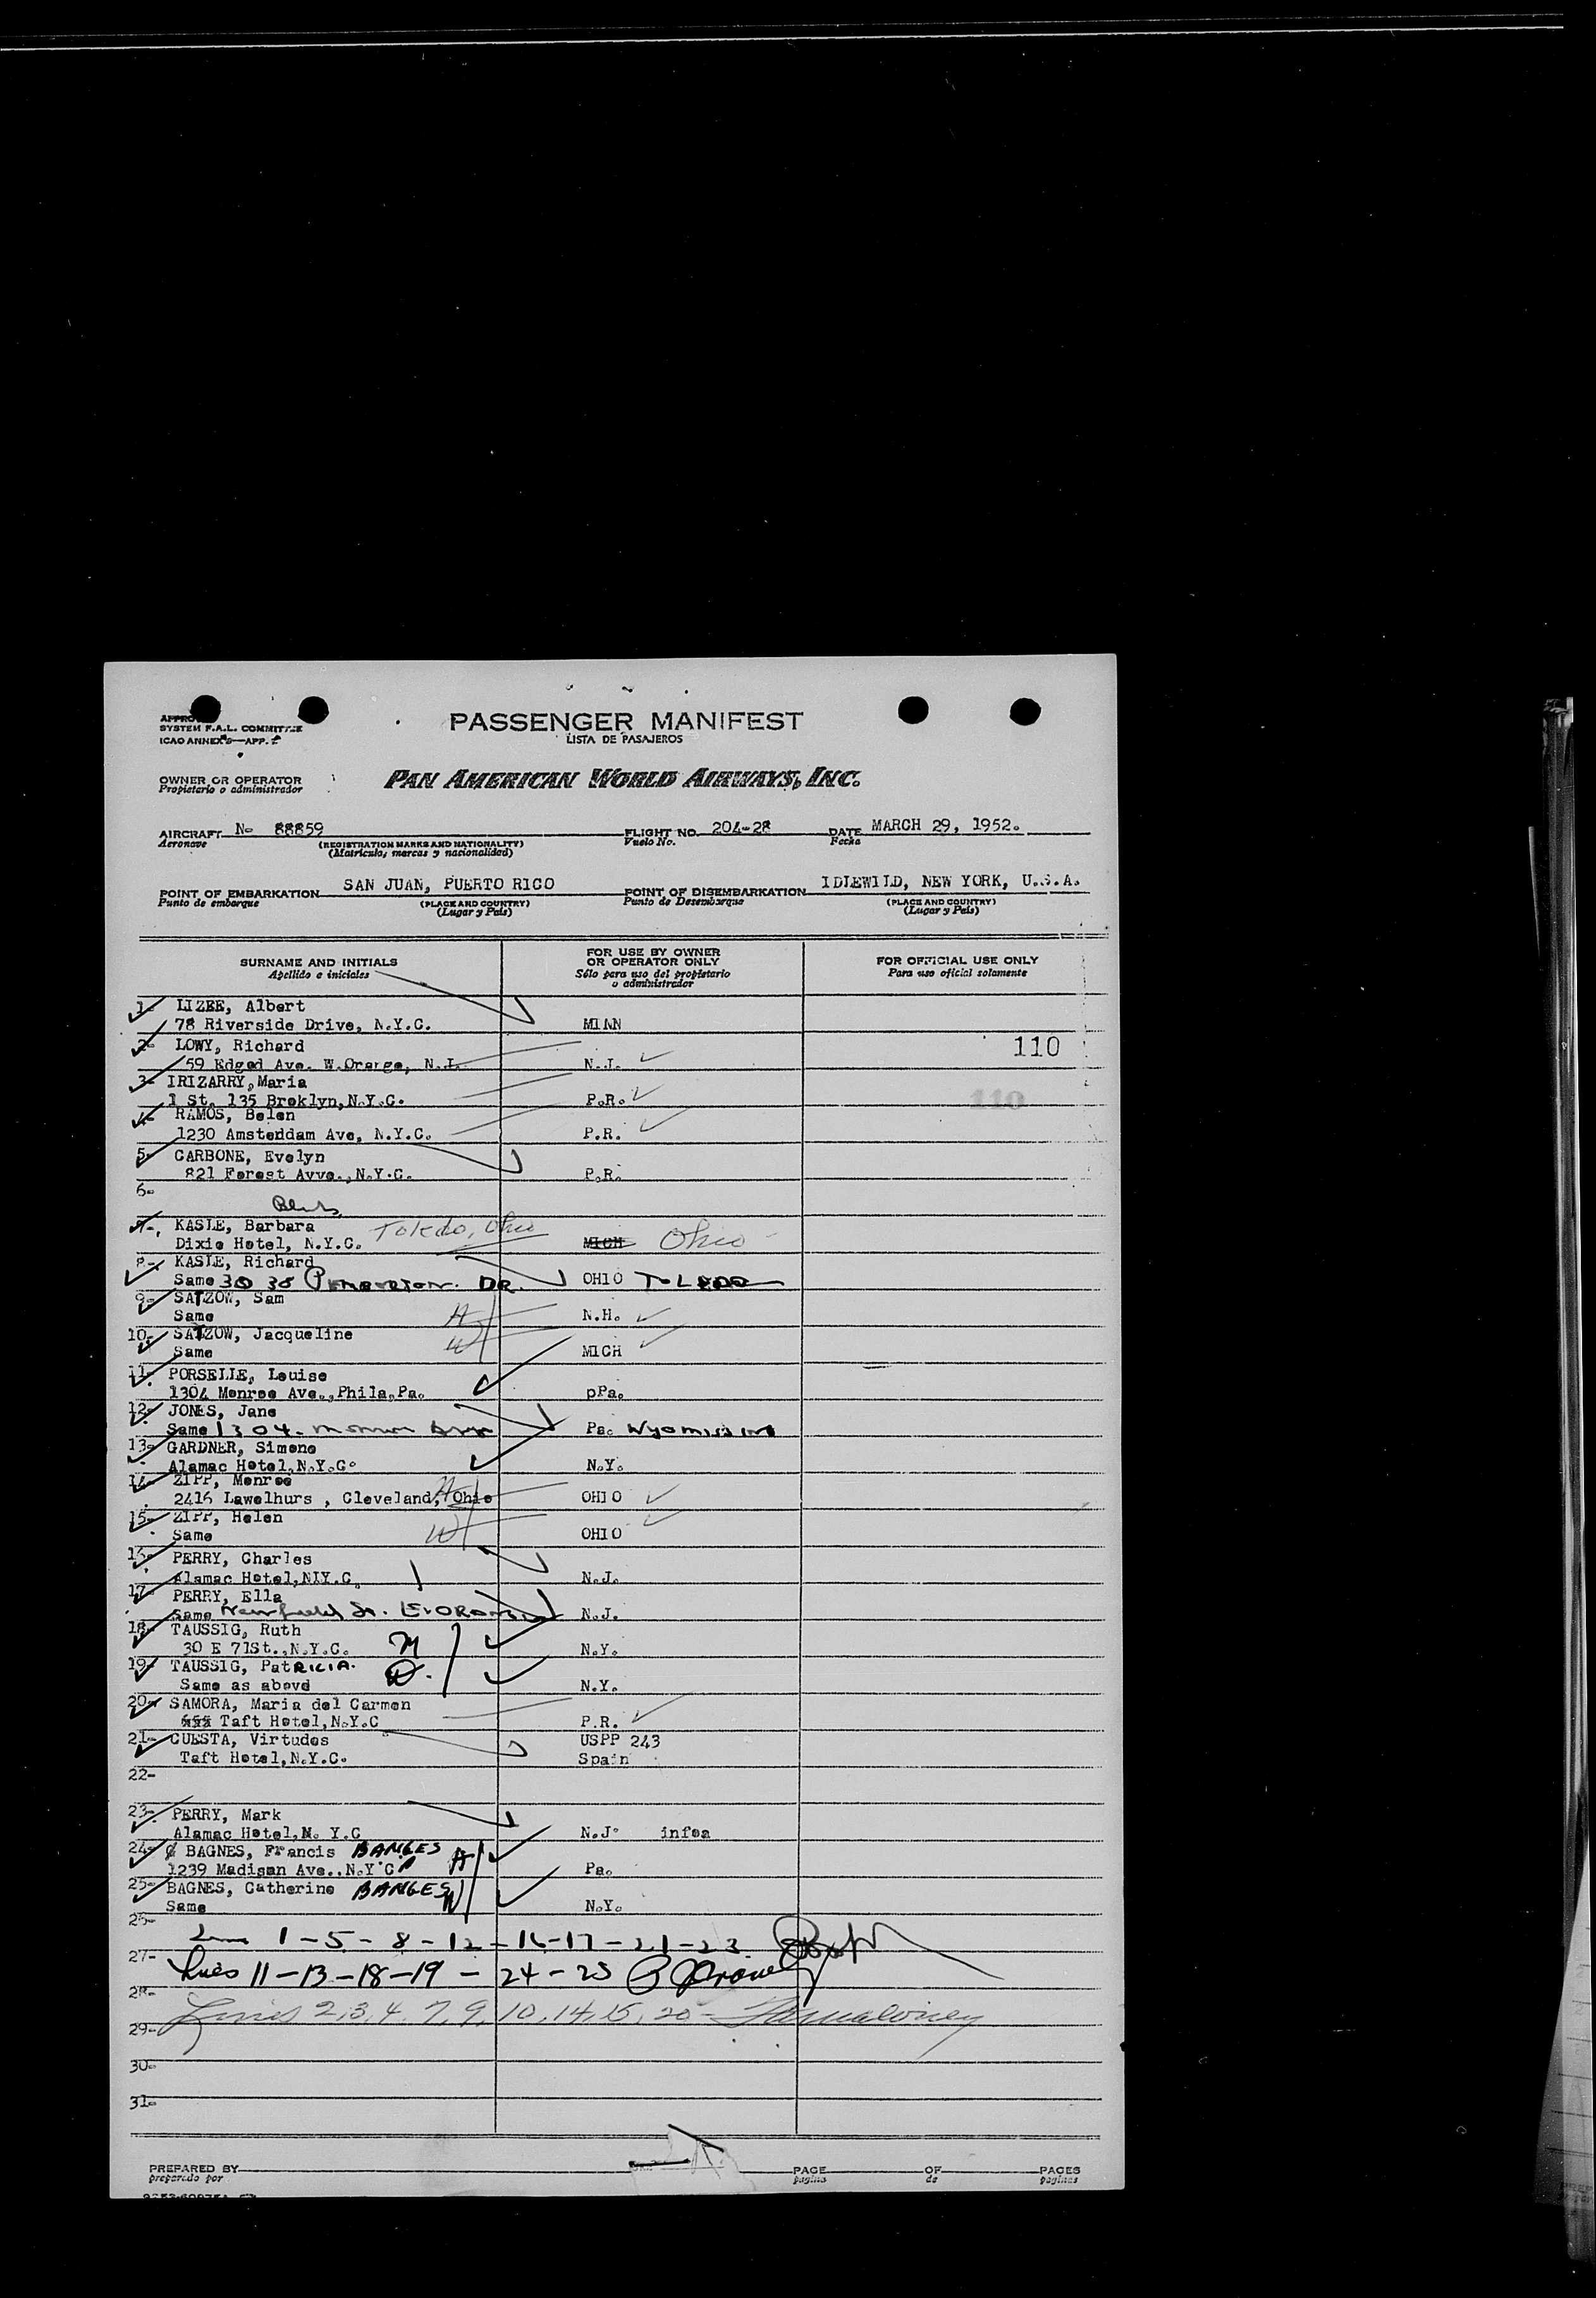 APPROVED
SYSTEM F.A.L. COMMITTEE
ICAO ANNEX 9—APP.
PASSENGER MANIFEST
LISTA DE PASAJEROS
OWNER OR OPERATOR
Propietario o administrador
PAN AMERICAN WORLD AIRWAYS, INC.
AIRCRAFT No 88859 FLIGHT NO. 204-28 DATE MARCH 29, 1952.
Aeronave (REGISTRATION MARKS AND NATIONALITY) Vuelo No. Fecha
(Matrícula, marcas y nacionalidad)
POINT OF EMBARKATION SAN JUAN, PUERTO RICO POINT OF DISEMBARKATION IDLEWILD, NEW YORK, U.S.A.
Punto de embarque (PLACE AND COUNTRY) Punto de Desembarque (PLACE AND COUNTRY)
(Lugar y País) (Lugar y País)
SURNAME AND INITIALS FOR USE BY OWNER OR OPERATOR ONLY FOR OFFICIAL USE ONLY
Apellido e iniciales Sólo para uso del propietario o administrador Para uso oficial solamente
1- LIZEE, Albert
78 Riverside Drive, N.Y.C. MINN
2- LOWY, Richard 110
59 Edged Ave. W.Orange, N.J. N.J.
3- IRIZARRY, Maria
1 St. 135 Broklyn, N.Y.C. P.R. 110
4- RAMOS, Belen
1230 Amsteddam Ave, N.Y.C. P.R.
5- CARBONE, Evelyn
821 Forest Avve., N.Y.C. P.R.
6-
7- KASLE, Barbara Toledo, Ohio
Dixie Hotel, N.Y.C. MICH Ohio
8- KASLE, Richard
Same 3535 PEMBERTON DR. OHIO TOLEDO
9- SATZOW, Sam H
Same N.H.
10- SATZOW, Jacqueline W
Same MICH
11- PORSELLE, Louise
1304 Monroe Ave., Phila, Pa. pPa.
12- JONES, Jane
Same 1304 Pa. Wyomissing
13- GARDNER, Simone
Alamac Hotel, N.Y.C. N.Y.
14- ZIPP, Monroe H
2416 Lawelhurs , Cleveland, Ohio OHIO
15- ZIPP, Helen W
Same OHIO
16- PERRY, Charles
Alamac Hotel, NIY.C. N.J.
17- PERRY, Ella
Same N.J.
18- TAUSSIG, Ruth
30 E 71St., N.Y.C. M N.Y.
19- TAUSSIG, PatRICIA. D.
Same as abovd N.Y.
20- SAMORA, Maria del Carmen
Taft Hotel, N.Y.C P.R.
21- CUESTA, Virtudes USPP 243
Taft Hotel, N.Y.C. Spain
22-
23- PERRY, Mark
Alamac Hotel, N. Y.C N.J. infea
24- BAGNES, Francis BANGES H
1239 Madison Ave., N.Y.C Pa.
25- BAGNES, Catherine BANGES W
Same N.Y.
26-
1-5-8-12-16-17-21-23
27-
Lines 11-13-18-19-24-25
28-
Lines 2,3,4,7,9,10,14,15,20-
29-
30-
31-
PREPARED BY PAGE OF PAGES
preparado por página de páginas